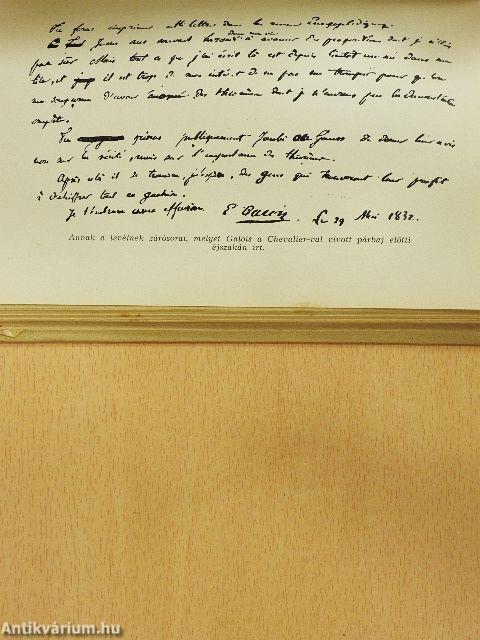 Tu feras imprimer cette lettre dans la revue Encyclopédique.
Je me suis souvent hasardé dans ma vie à avancer des propositions dont je n'étais
pas sûr. Mais tout ce que j'ai écrit là est depuis bientôt un an dans ma
tête, et il est trop de mon intérêt de ne pas me tromper pour qu'on
me soupçonne d'avoir énoncé des théorèmes dont je n'aurais pas la démonstration
complète.
Tu prieras publiquement Jacobi Gauss de donner leur avis
non sur la vérité, mais sur l'importance des théorèmes.
Après cela il se trouvera, j'espère, des gens qui trouveront leur profit
à déchiffrer tout ce gâchis.
Je t'embrasse avec effusion. E Galois Le 29 Mai 1832.
Annak a levélnek zárósorai, melyet Galois a Chevalier-val vívott párbaj előtti
éjszakán írt.
Antikvárium.hu